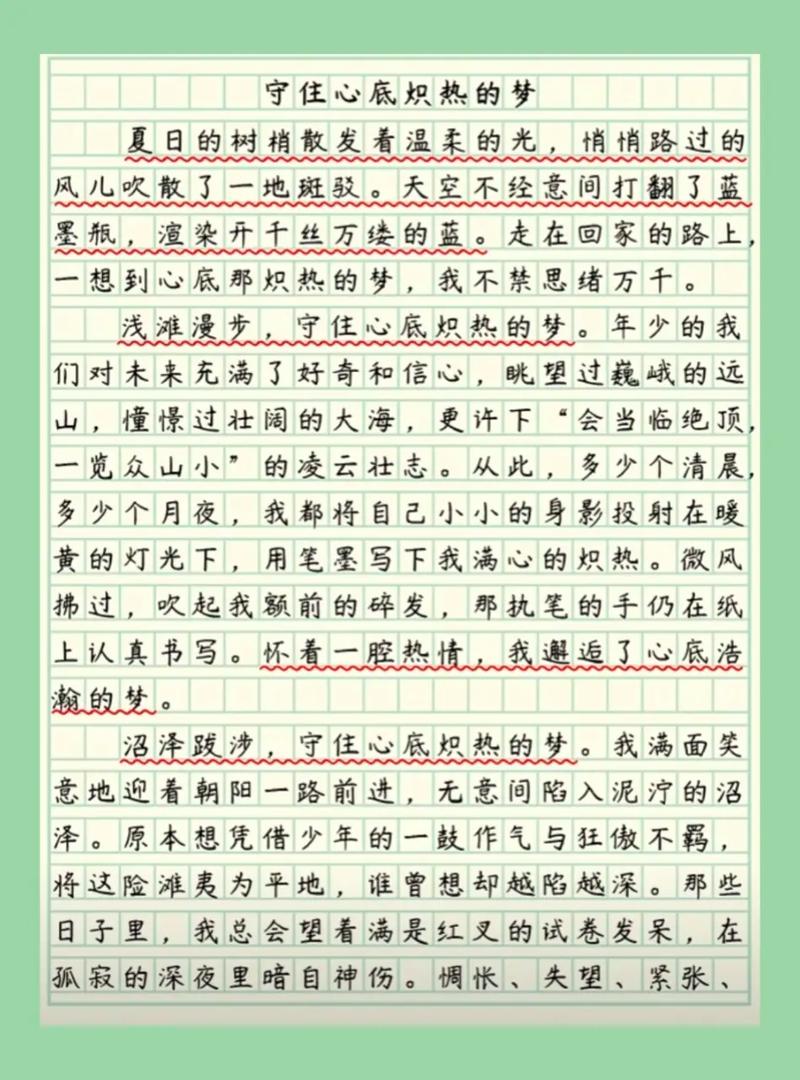 守住心底炽热的梦
夏日的树梢散发着温柔的光，悄悄路过的
风儿吹散了一地斑驳。天空不经意间打翻了蓝
墨瓶，渲染开千丝万缕的蓝。走在回家的路上，
一想到心底那炽热的梦，我不禁思绪万千。
浅滩漫步，守住心底炽热的梦。年少的我
们对未来充满了好奇和信心，眺望过巍峨的远
山，憧憬过壮阔的大海，更许下“会当临绝顶，
一览众山小”的凌云壮志。从此，多少个清晨，
多少个月夜，我都将自己小小的身影投射在暖
黄的灯光下，用笔墨写下我满心的炽热。微风
拂过，吹起我额前的碎发，那执笔的手仍在纸
上认真书写。怀着一腔热情，我邂逅了心底浩
瀚的梦。
沼泽跋涉，守住心底炽热的梦。我满面笑
意地迎着朝阳一路前进，无意间陷入泥泞的沼
泽。原本想凭借少年的一鼓作气与狂傲不羁，
将这险滩夷为平地，谁曾想却越陷越深。那些
日子里，我总会望着满是红叉的试卷发呆，在
孤寂的深夜里暗自神伤。惆怅、失望、紧张、